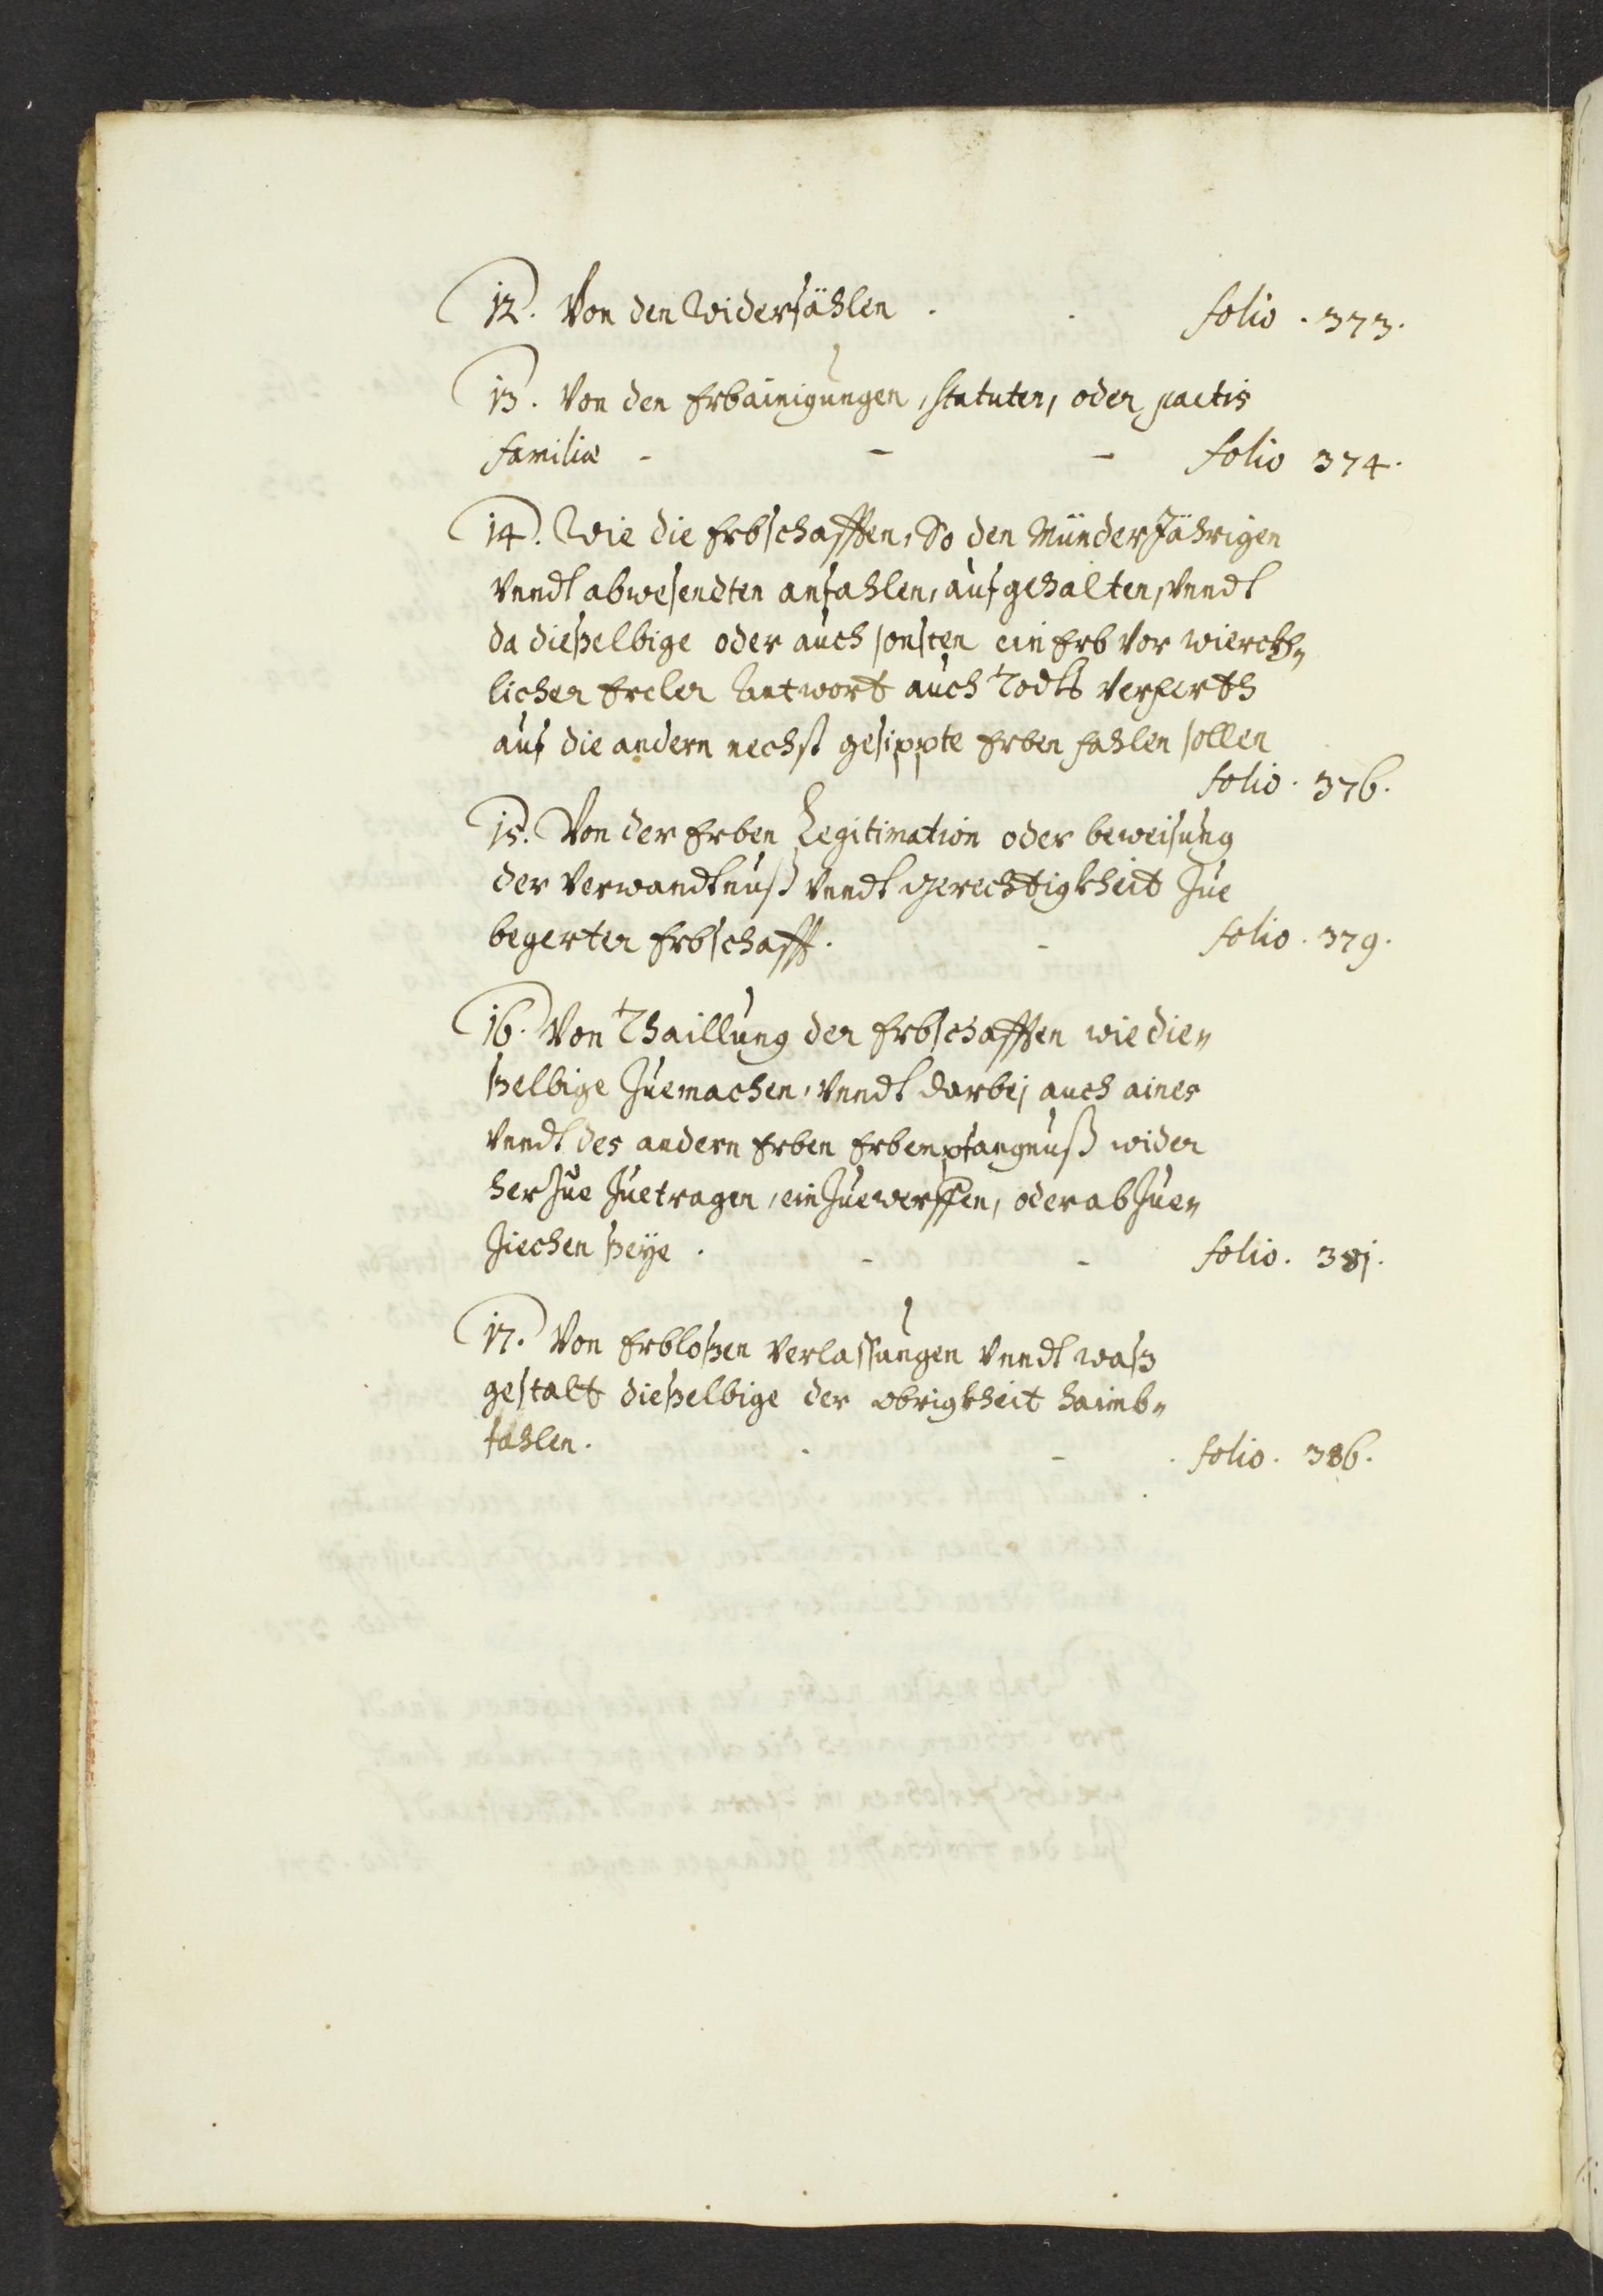 12. Von den Widerfählen . . folio . 373.
13. Von den Erbainigungen, statuten, oder pactis
familiæ - - - folio 374.
14. Wie die Erbschafften, So den Münderjährigen
Vnndt abwesendten anfahlen, aufgehalten, Vnndt
da dießelbige oder auch sonsten ein Erb vor wierckh„
licher Antwort auch Todts verferth
auf die andern nechst gesippte Erben fahlen sollen
folio . 376.
15. Von der Erben Legitimation oder beweisung
der Verwandtnuß Vnndt gerechtigkheit Zue
begerter Erbschafft. - folio . 379.
16. Von Thaillung der Erbschafften wie die„
ßelbige Zuemachen, Vnndt darbej auch aines
Vnndt des andern Erben Erbempfangnuß wider
herZue Zuetragen, einZuewerffen, oder abZue„
Ziechen ßeye . - - folio . 381.
17. Von Erbloßen Verlassungen Vnndt waß
gestalt dießelbige der obrigkheit haimb„
fahlen. . - . folio . 386.